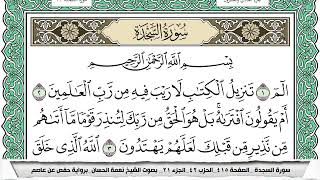 سُورَةُ السَّجْدَةِ
بِسْمِ ٱللَّهِ ٱلرَّحْمَٰنِ ٱلرَّحِيمِ
الٓمٓ ١ تَنزِيلُ ٱلْكِتَٰبِ لَا رَيْبَ فِيهِ مِن رَّبِّ ٱلْعَٰلَمِينَ ٢
أَمْ يَقُولُونَ ٱفْتَرَىٰهُۚ بَلْ هُوَ ٱلْحَقُّ مِن رَّبِّكَ لِتُنذِرَ قَوْمًا مَّآ أَتَىٰهُم
مِّن نَّذِيرٍ مِّن قَبْلِكَ لَعَلَّهُمْ يَهْتَدُونَ ٣ ٱللَّهُ ٱلَّذِى خَلَقَ
سورة السجدة الصفحة ٤١٥ الحزب ٤٢ الجزء ٢١ بصوت الشيخ نعمة الحسان برواية حفص عن عاصم